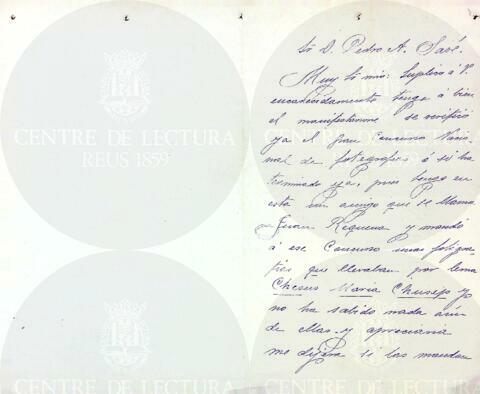 Sr. D. Pedro A. Savé.
Muy Sr mio: Suplico á V.
encarecidamente tenga á bien
el manifestarme se verificó
ya el gran Concurso Nacio-
nal de fotografias ó si ha
terminado ya, pues tengo en
esta un amigo que se llama
Juan Requena y mandó
á ese Concurso unas fotogra-
fias que llevaban por lema
Chesus Maria Chusep yo
no ha sabido nada aún
de ellas y apreciaria
me dijera si las mandan
CENTRE DE LECTURA
REUS 1859
CENTRE DE LECTURA
REUS 1859
CENTRE DE LECTURA
CENTRE DE LECTURA